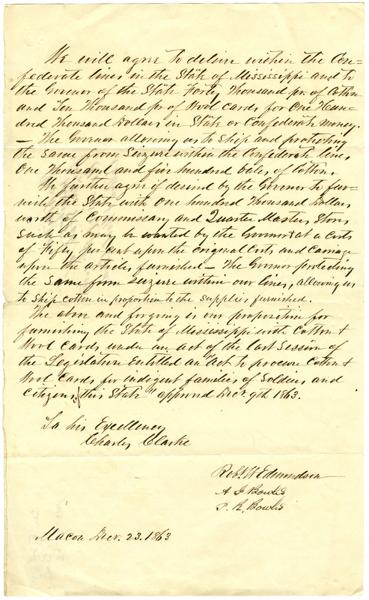 We will agree to deliver within the Con-
federate lines in the State of Mississippi and to
the Governor of the State Forty Thousand pr. of Cotton
and Ten Thousand pr of Wool cards for One Hun-
dred Thousand Dollars in State or Confederate money.
— The Governor allowing us to ship and protecting
the same from seizure within the Confederate lines,
One Thousand and five hundred bales of Cotton.
We further agree if desired by the Governor to fur-
nish the State with one hundred Thousand Dollars
worth of Commissary and Quarter Masters Stores
such as may be wanted by the Governor at a cost
of Fifty per cent upon the original costs and carriage
upon the articles furnished — The Governor protecting
the same from seizure within our lines, allowing us
to ship cotton in proportion to the supplies furnished.
The above and forgoing is our proposition for
furnishing the State of Mississippi with Cotton &
Wool Cards under an act of the last Session of
the Legislature Entitled an "Act to procure Cotton &
Wool Cards for indigent families of Soldiers and
Citizens of this State" approved Decr. 9th 1863.
To his Excellency
Charles Clarke
Robt. W Edmundson
A J Bowls
Macon Decr. 23. 1863